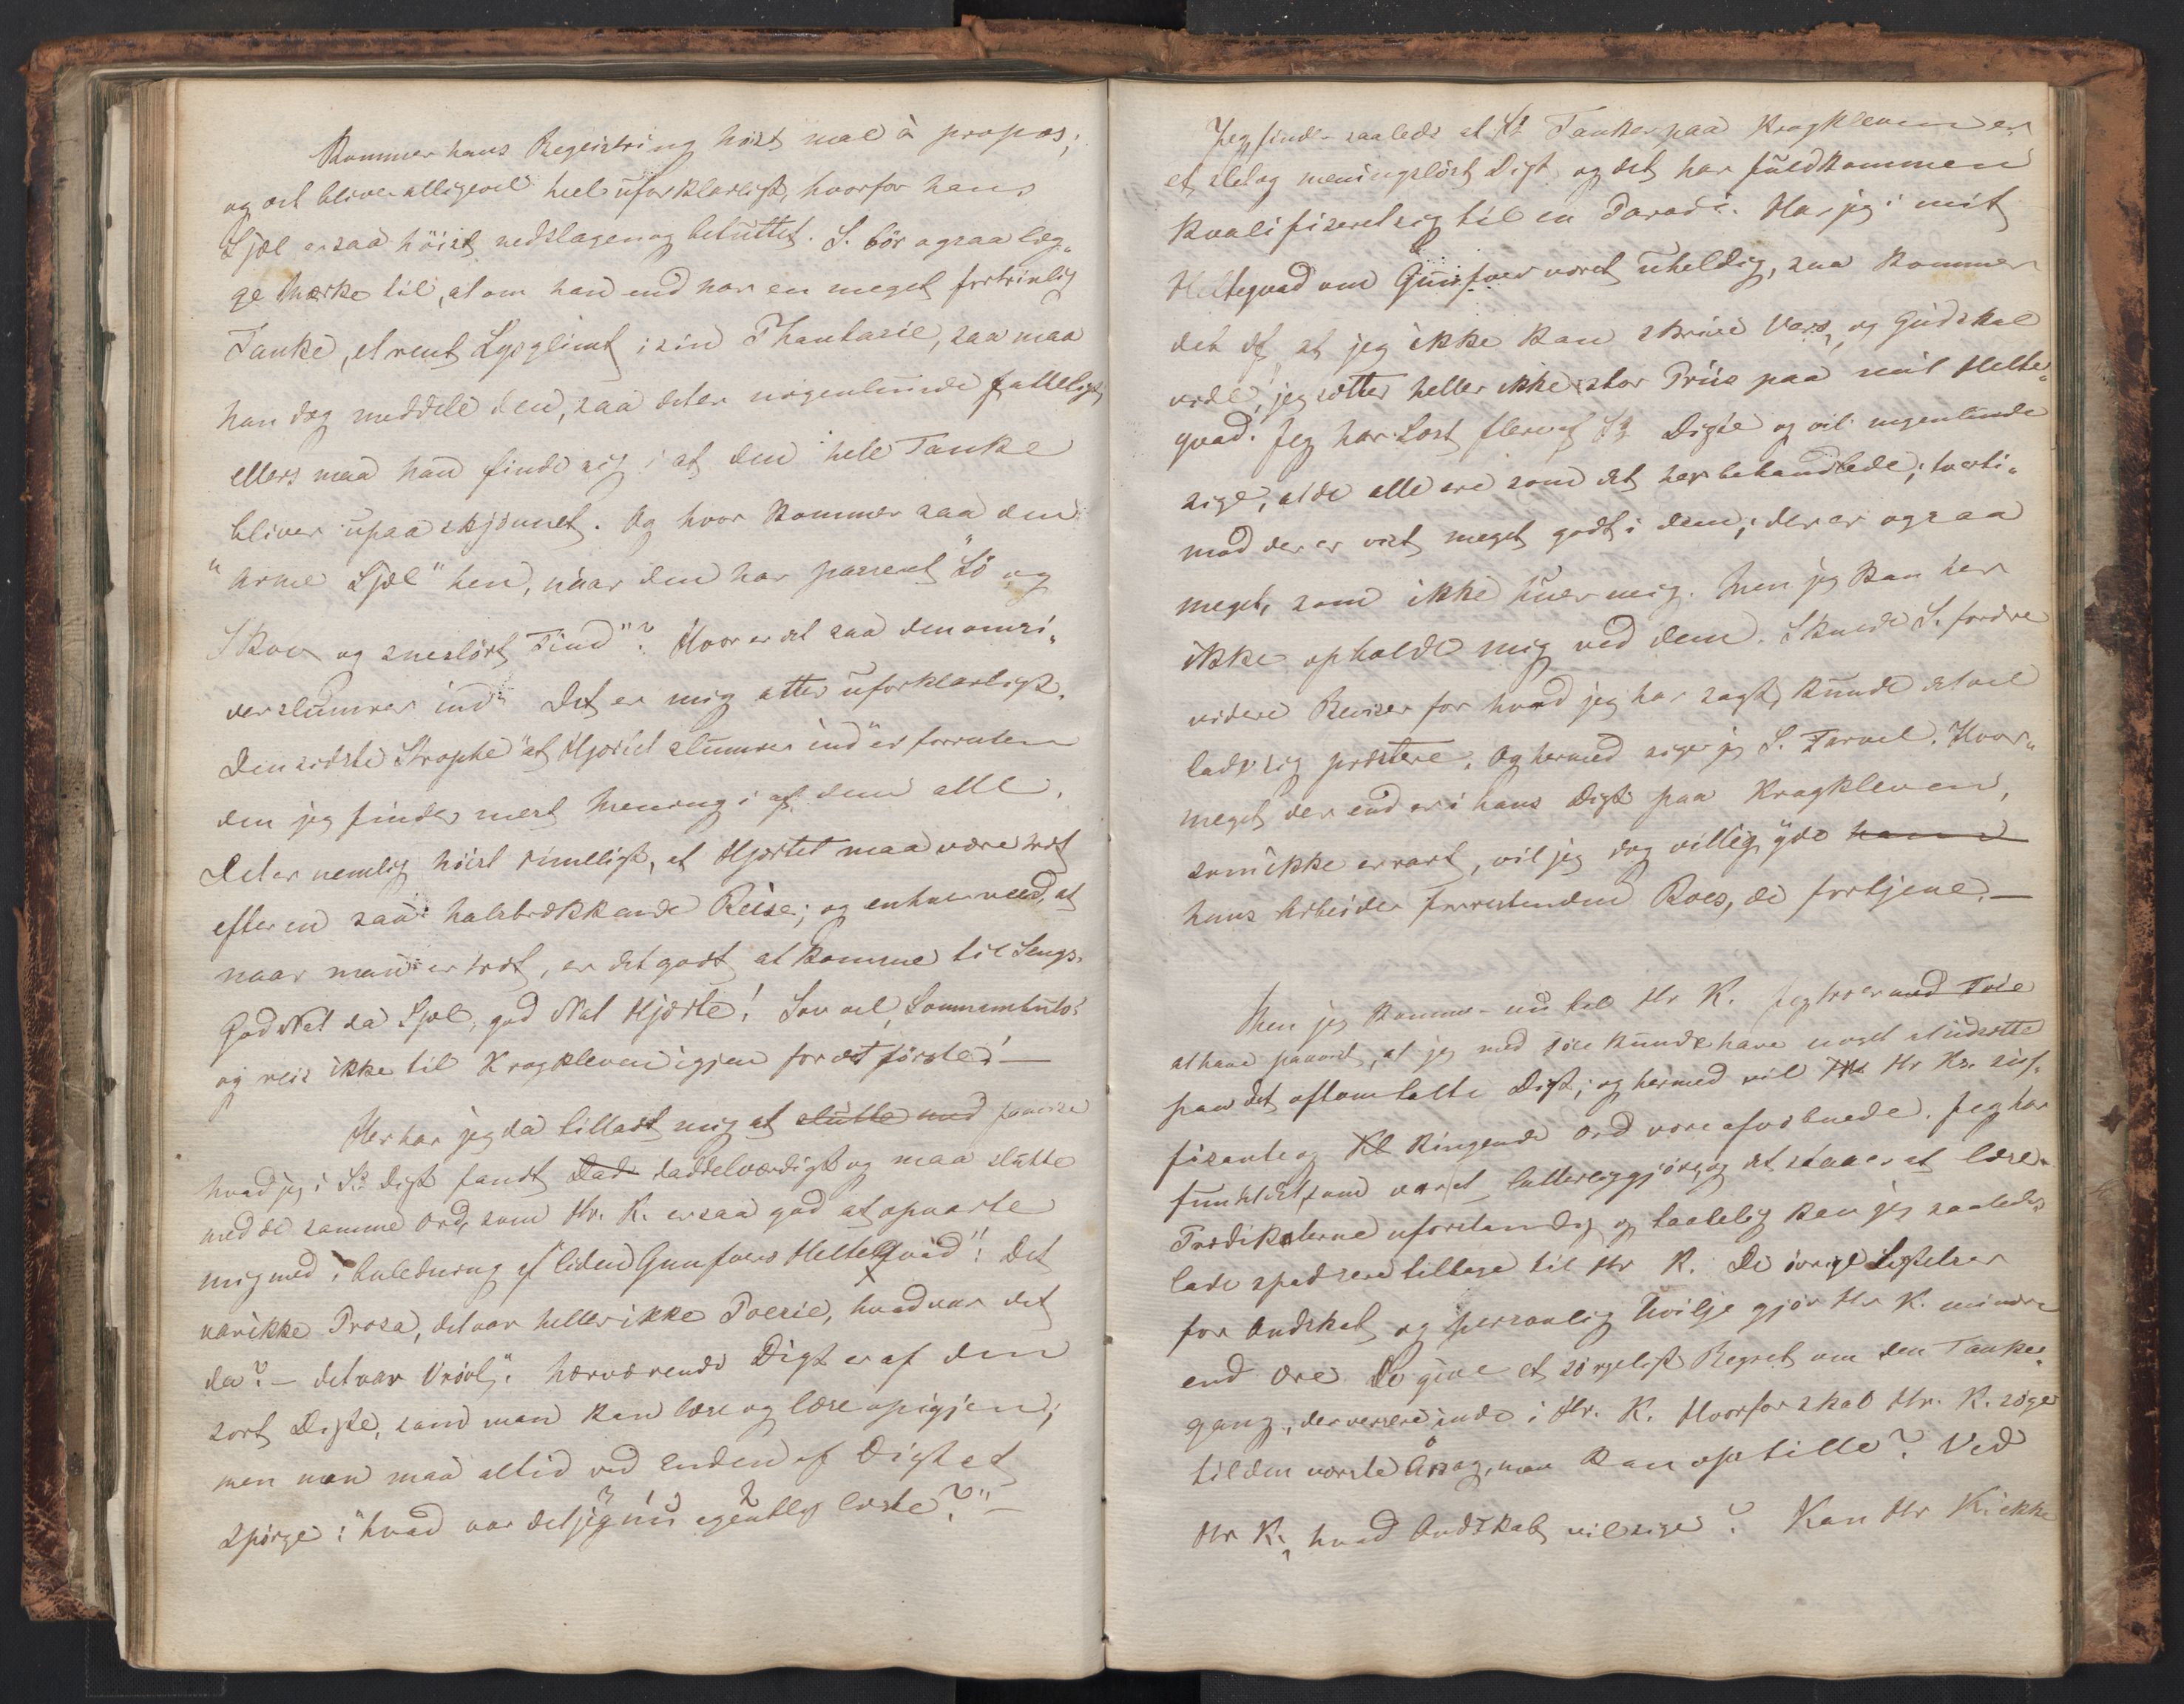 Kommer hans Begeistring høist mal à propos;
og det bliver alligevel heel uforklarligt, hvorfor hans
Sjæl er saa høist nedslagen og betuttet. S. bør ogsaa læg„
ge Mærke til, at om han end har en meget fortrinlig
Tanke, et rent Lysglimt i sin Phantasie, saa maa
han dog meddele den, saa det er nogenlunde fatteligt,
ellers maa han finde sig i at den hele Tanke
bliver upaaskjønnet. Og hvor kommer saa den
"Arme Sjæl" hen, naar den har passeret "Sø og
Skov og sneslørt Tind"? Hvor er det saa den omsi„
der slumrer ind? Det er mig atter uforklarligt.
Den sidste Strophe "at Hjertet slumrer ind" er forresten
den jeg finder mest Mening i af dem alle.
Det er nemlig høist rimeligt, at Hjertet maa være træt
efter en saa halsbrækkende Reise; og enhver veed, at
naar man er træt, er det godt at komme til Sengs.
God Nat da Sjæl, god Nat Hjerte! Sov vel,
og reis ikke til Krogkleven igjen for det første! —
Her har jeg da tilladt mig at slutte med paavise
hvad jeg i S's Digt fandt Dad daddelværdigt og maa slutte
med de samme Ord, som Hr. K. er saa god at opvarte
mig med i Anledning af "liden Gunfvers Heltekvad"! "Det
var ikke Prosa, det var heller ikke Poesie, hvad var det
da? — det var Vrøvl". Nærværende Digt er af den
sort Digte, som man kan læse og læse op igjen;
men man maa altid ved Enden af Digtet
spørge: "hvad var det jeg nu egentlig læste?" —
Jeg finder saaledes at S's Tanker paa Krogkleven er
et slet og meningsløst Digt og det har fuldkommen
kvalifiseret sig til en Parodi. Har jeg i mit
Helteqvad om Gunfver været uheldig, saa kommer
det af, at jeg ikke kan skrive Vers, og Gud skal
vide, jeg sætter heller ikke stor Priis paa mit Helte„
qvad. Jeg har læst flere af S's Digte og vil ingenlunde
sige, at de alle ere som det her behandlede; tverti„
mod der er vist meget godt i dem; der er ogsaa
meget, som ikke huer mig. Men jeg kan her
ikke opholde mig ved dem. Skulde S. fordre
videre Beviser for hvad jeg har sagt, kunde det vel
lade sig præstere. Og hermed siger jeg S. Farvel. Hvor„
meget der end er i hans Digt paa Krogkleven,
som ikke er vært, vil jeg dog villig yde ham
hans Arbeider forresten den Roes, de fortjene. —
Men jeg kommer nu til Hr K. Jeg troer med Føie
at have paavist, at jeg med Føie kunde have noget at udsætte
paa det oftomtalte Digt; og hermed vil Hr Ks. suf„
fisante og Kl klingende Ord være afvæbnede. Jeg har
fundet det, som var at latterliggjøre, og det staaer at læse.
Prædikaterne uforstandig og taabelig kan jeg saaledes
lade spadsere tilbage til Hr K. De øvrige Sigtelser
for Ondskab og personlig Uvilje gjør Hr K. mindre
end Ære. De give et sørgeligt Begreb om den Tanke„
gang, der versere inde i Hr. K. Hvorfor skal Hr. K. søge
til den værste Aarsag, man kan opstille? Ved
Hr K., hvad Ondskab vil sige? Kan Hr K. ikke